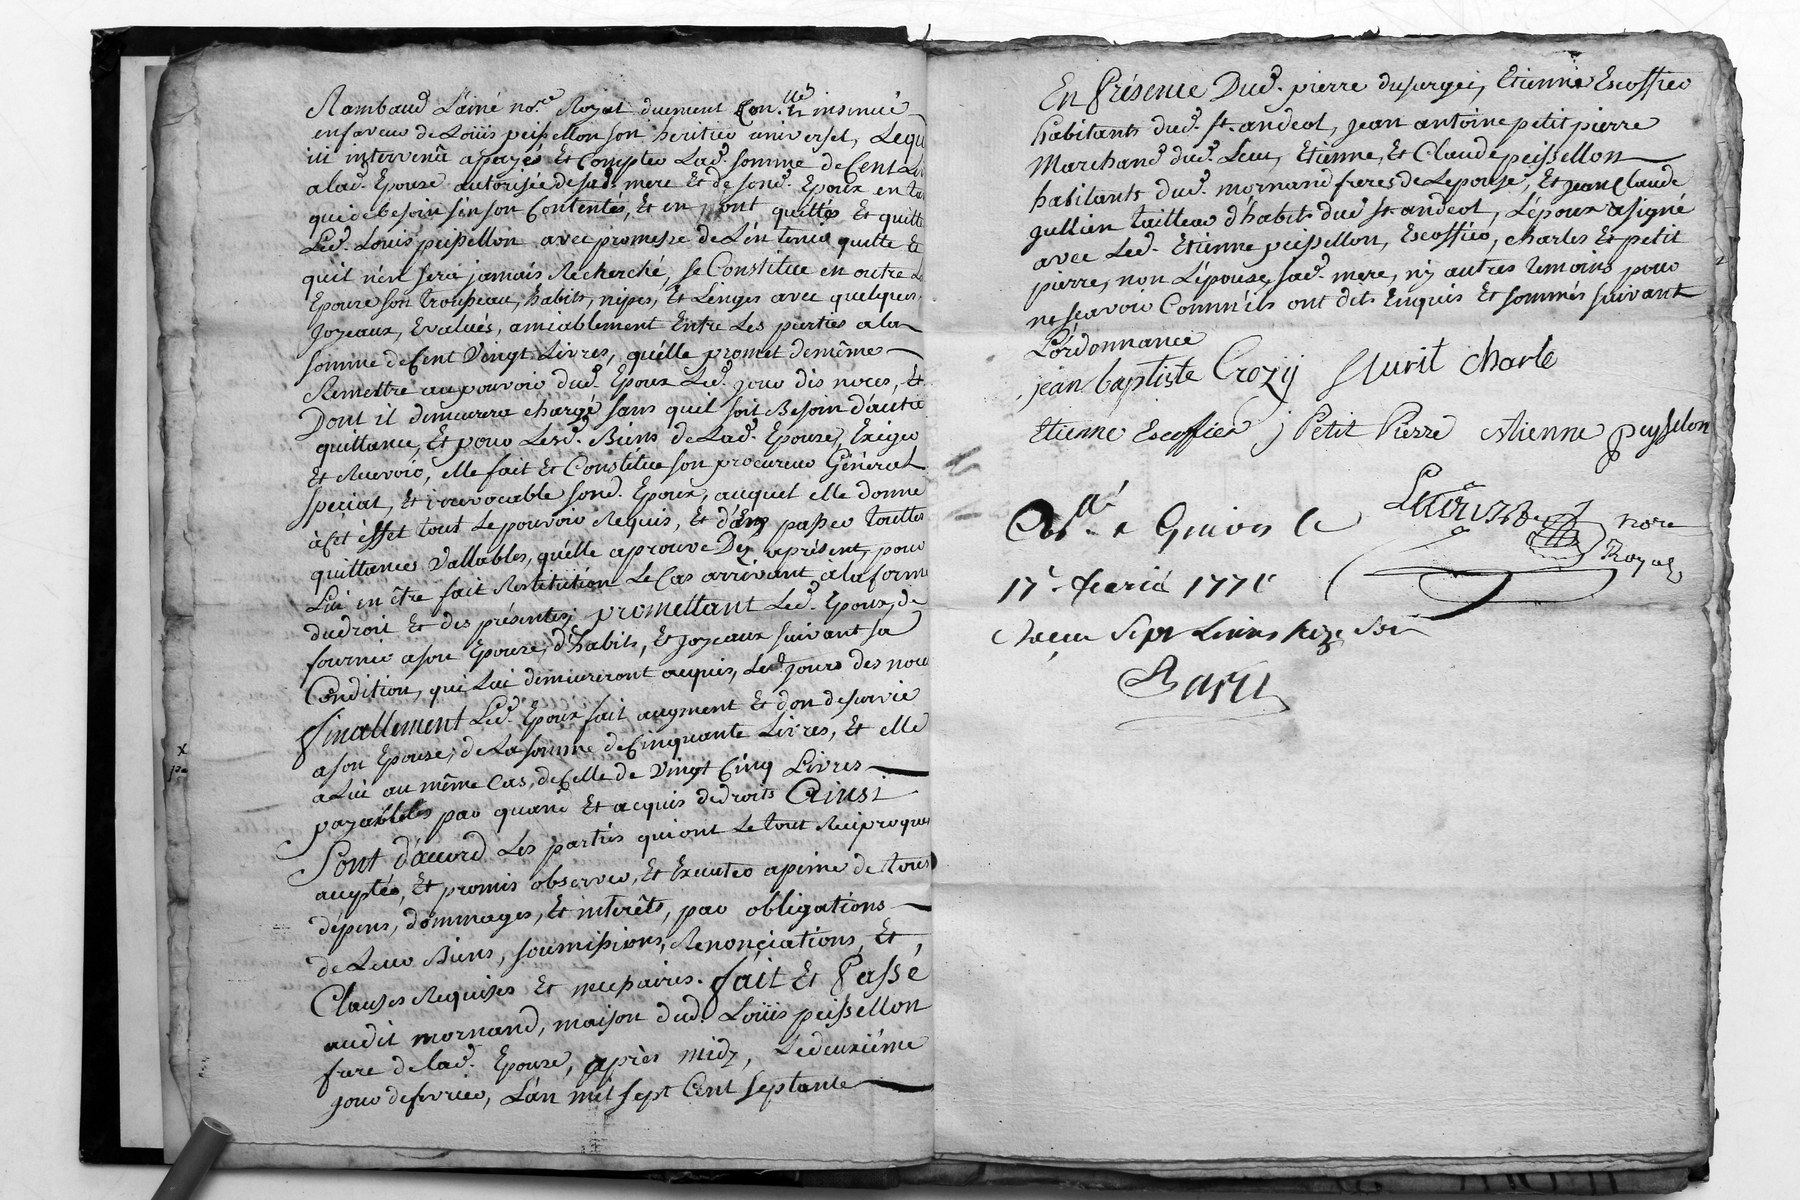 Rambaud L'ainé no.re Royal duement Con.llé insinué
en faveur de Loüis peissellon son heritier universel, Lequ
ici intervenü a payés Et Compter Lad. somme de Cent Li
a lad. Epouse autorisée de sad. mere Et de sond. Epoux en ta
que de besoin s'en son Contentés, Et en, ont quittés Et quitte
Led. Louis peissellon avec promesse de L'en tenir quitte Et
quil n'en sera jamais Recherché, se Constitue en outre L
Epouse son trousseau, habits, nipes, Et Linges avec quelques
Joyeaux, Evalués, amiablement Entre Les parties a la
somme de Cent Vingt Livres, qu'elle promet de même
Remettre au pouvoir dud. Epoux Led. jour dis noces, Et
Dont il demeurera chargé sans quil soit Besoin d'autre
quittance, Et pour Lesd. Biens de Lad. Epouse, Exiger
Et Recevoir, elle fait Et Constitue son procureur Général
special, Et irrevocable sond. Epoux, auquel elle donne
à Cet effet tout Le pouvoir Requis, Et d'En passer touttes
quittances Vallables, qu'elle aprouve Des aprésent, pour
Lui en être fait Restitution Le Cas arrivant à la forme
du droit Et des présentes, promettant Led. Epoux, de
fournir a son Epouse, d'habits, Et Joyeaux suivant sa
Condition, qui Lui demeureront acquis, Led. jours des noce
finallement Led. Epoux fait augment Et don de survie
a son Epouse, de La somme de Cinquante Livres, Et elle
a Lui au même Cas, de Celle de Vingt Cinq Livres
payables par quand Et acquis de droits Ainsi
Sont d'acord Les parties qui ont Le tout Reciproque
acceptés, Et promis observer, Et Executer a peine de tous
dépens, dommages, Et interêts, par obligations
de Leur Biens, soumissions, Renonciations, Et,
Clauses Requises Et necessaires. fait Et Passé
audit mornand, maison dud. Loüis peissellon
frere de lad. Epouse, après midy, Le deuxiéme
jour de fevrier, L'an mil sept Cent septante
En Présence Dud. pierre dusurgei, Etienne Escoffier
habitants dud. st. andeol, jean antoine petit pierre
Marchand dud. Lieu, Etienne, Et Claude peissellon
habitants dud. mornand freres de Lepouse, Et jean Claude
gullien tailleur d'habits dud st. andeol, L'époux a signé
avec Led. Etienne peissellon, Escoffier, charles Et petit
pierre, non L'épouse, sad. mere, ny autres temoins pour
ne sçavoir Comm'ils ont dits Enquis Et sommés suivant
L'órdonnance
jean baptiste Crozy fluril charle
Etienne Escoffier j Petit Pierre etienne peysselon
Con.llé a Givors le
nore
Royal
17e fevrié 1770
Reçeu Sept Livres